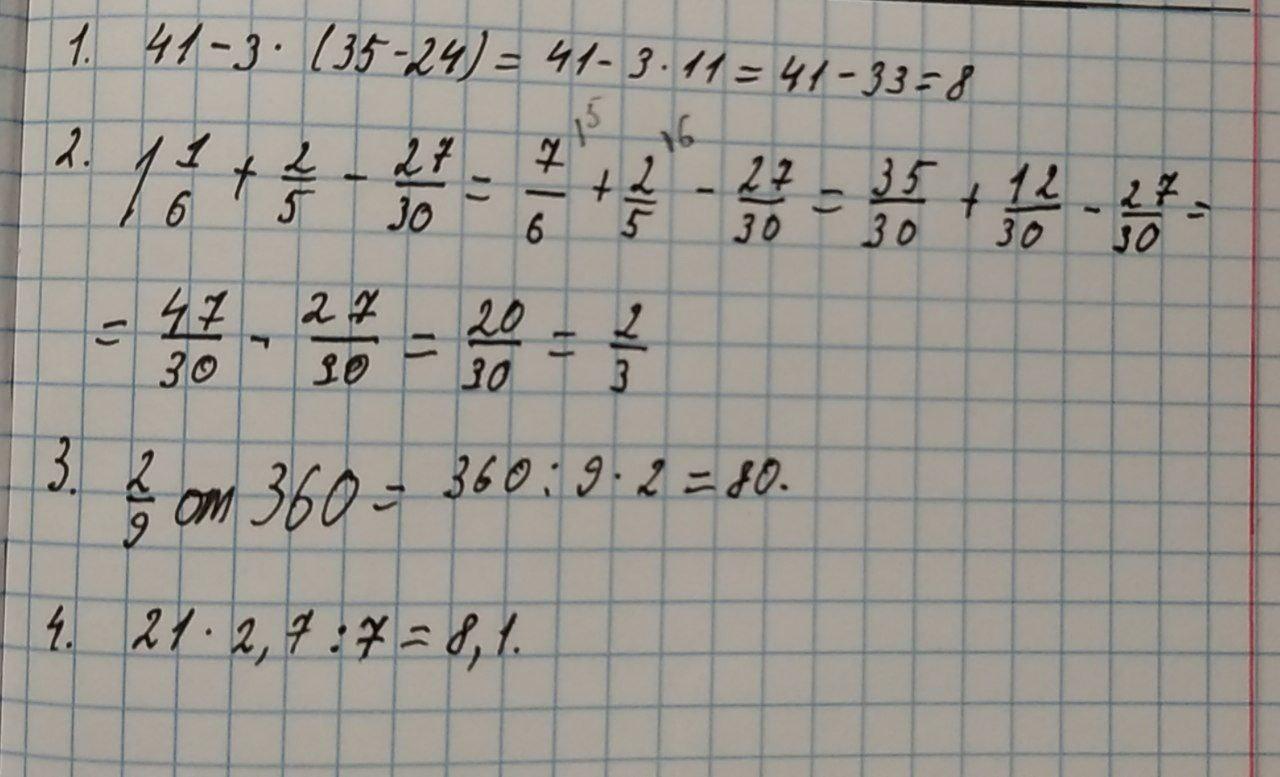 1. 41 - 3 · (35 - 24) = 41 - 3 · 11 = 41 - 33 = 8
2. 1 1/6 + 2/5 - 27/30 = 7/6 \5 + 2/5 \6 - 27/30 = 35/30 + 12/30 - 27/30 =
= 47/30 - 27/30 = 20/30 = 2/3
3. 2/9 от 360 = 360 : 9 · 2 = 80.
4. 21 · 2,7 : 7 = 8,1.